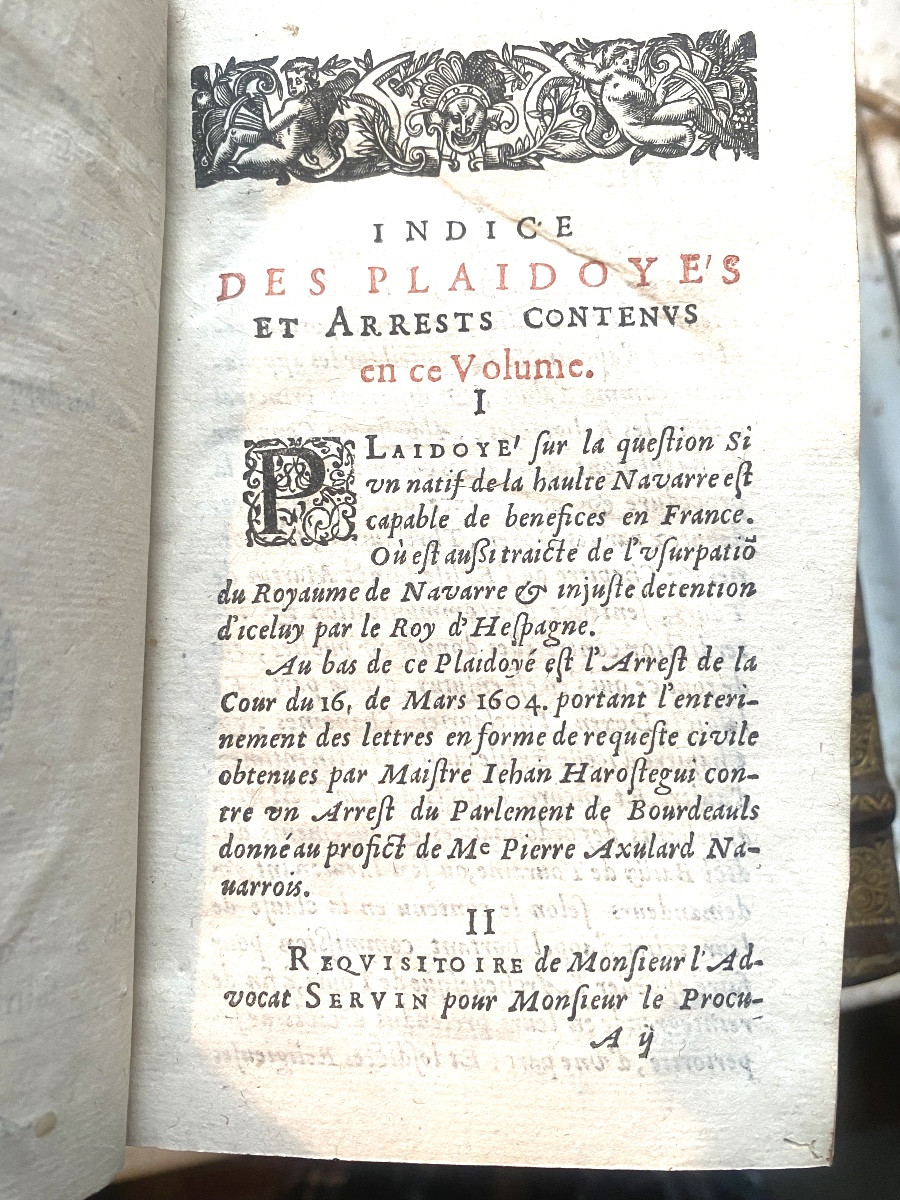 INDICE
DES PLAIDOYE'S
ET ARRESTS CONTENVS
en ce Volume.
I
PLAIDOYE' ſur la queſtion Si
vn natif de la haulte Navarre eſt
capable de benefices en France.
Où eſt auſſi traicte de l'vſurpatiõ
du Royaume de Navarre & injuſte detention
d'iceluy par le Roy d'Heſpagne.
Au bas de ce Plaidoyé eſt l'Arreſt de la
Cour du 16, de Mars 1604. portant l'enteri-
nement des lettres en forme de requeſte civile
obtenues par Maiſtre Iehan Haroſtegui con-
tre vn Arreſt du Parlement de Bourdeauls
donné au profict de Me Pierre Axulard Na-
uarrois.
II
REQVISITOIRE de Monſieur l'Ad-
vocat SERVIN pour Monſieur le Procu-
A ij